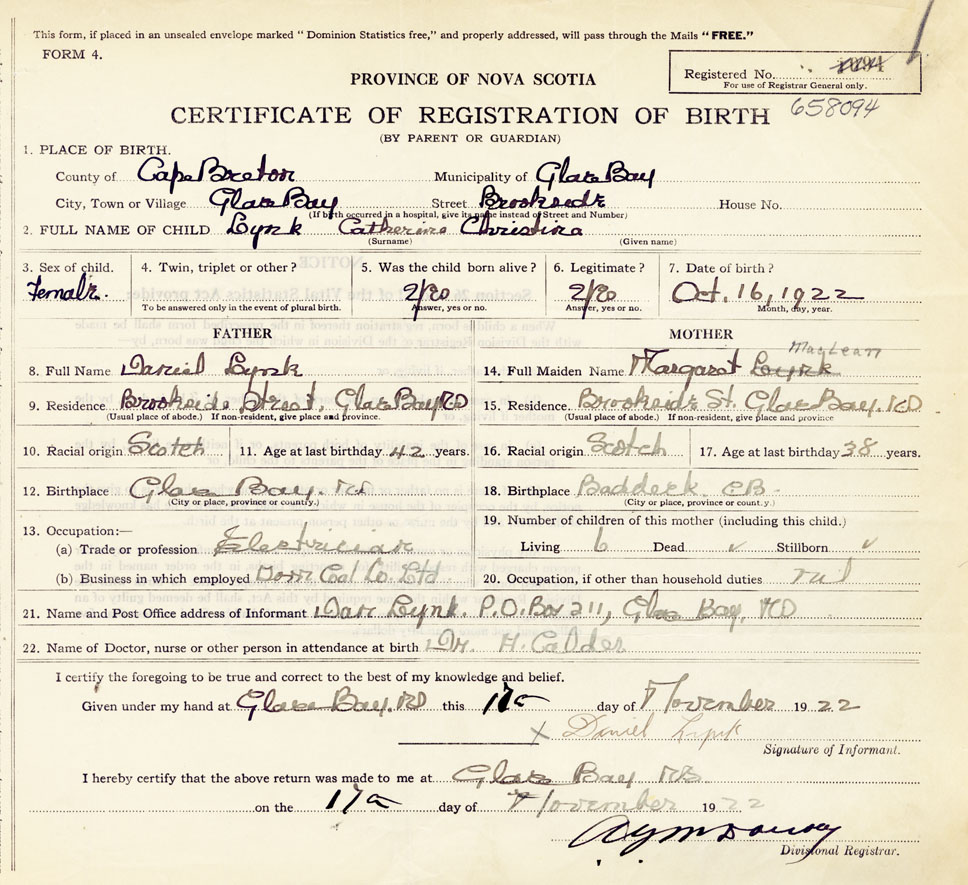 This form, if placed in an unsealed envelope marked "Dominion Statistics free," and properly addressed, will pass through the Mails "FREE."
FORM 4.
Registered No.
For use of Registrar General only.
PROVINCE OF NOVA SCOTIA
658094
CERTIFICATE OF REGISTRATION OF BIRTH
(BY PARENT OR GUARDIAN)
1. PLACE OF BIRTH.
County of Cape Breton Municipality of Glace Bay
City, Town or Village Glace Bay Street Brookside House No.
(If birth occurred in a hospital, give its name instead of Street and Number)
2. FULL NAME OF CHILD Lynk Catherine Christina
(Surname) (Given name)
3. Sex of child. 4. Twin, triplet or other? 5. Was the child born alive? 6. Legitimate? 7. Date of birth?
Female Yes Yes Oct. 16, 1922
To be answered only in the event of plural birth. Answer, yes or no. Answer, yes or no. Month, day, year.
FATHER MOTHER
MacLean
8. Full Name Daniel Lynk 14. Full Maiden Name Margaret Lynk
9. Residence Brookside Street, Glace Bay 15. Residence Brookside St. Glace Bay.
(Usual place of abode.) If non-resident, give place and province. (Usual place of abode.) If non-resident, give place and province
10. Racial origin Scotch 11. Age at last birthday 42 years. 16. Racial origin Scotch 17. Age at last birthday 38 years.
12. Birthplace Glace Bay. 18. Birthplace Baddeck CB
(City or place, province or county.) (City or place, province or county.)
13. Occupation:— 19. Number of children of this mother (including this child.)
(a) Trade or profession Electrician Living 6 Dead Stillborn
(b) Business in which employed Dom Coal Co. Ltd 20. Occupation, if other than household duties nil
21. Name and Post Office address of Informant Dan Lynk. P.O. Box 211, Glace Bay,
22. Name of Doctor, nurse or other person in attendance at birth Dr. H. Calder
I certify the foregoing to be true and correct to the best of my knowledge and belief.
Given under my hand at Glace Bay. this 17 day of November 1922
X Daniel Lynk
Signature of Informant.
I hereby certify that the above return was made to me at Glace Bay
on the 17 day of November 1922
Divisional Registrar.